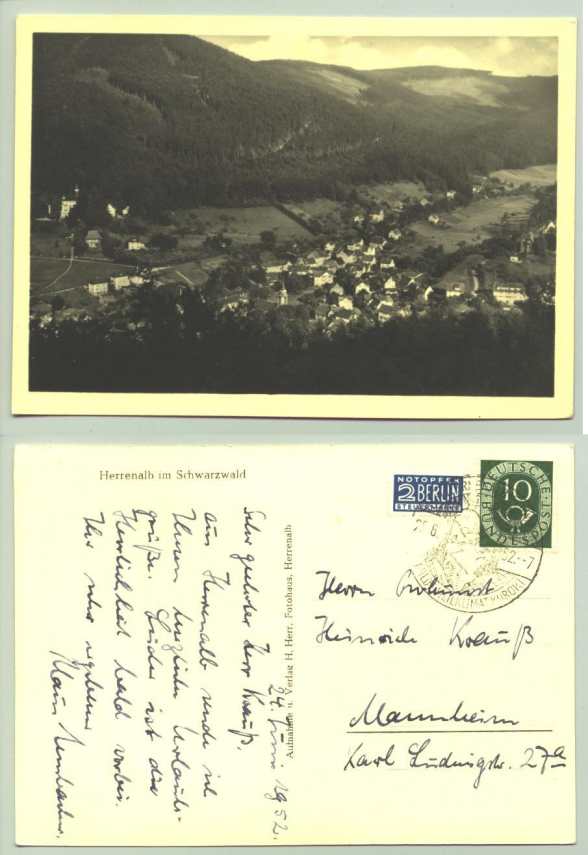 Herrenalb im Schwarzwald
24. Juni 1952.
Sehr geehrter Herr Krauß.
aus Herrenalb sende ich
Ihnen herzliche Urlaubs-
grüße. Leider ist die
Herrlichkeit bald vorbei.
Ihr sehr ergebener
Klaus
Aufnahme u. Verlag H. Herr, Fotohaus, Herrenalb
NOTOPFER
2 BERLIN
STEUERMARKE
DEUTSCHE
BUNDESPOST
10
HEILKLIMAT KURORT
Herrn
Heinrich Krauß
Mannheim
Karl Ludwigstr. 27a